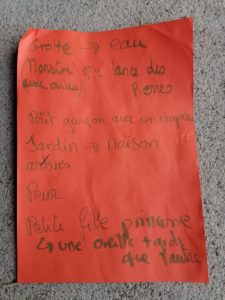 Grotte → eau
(Monstre qui lance des
avec ailes) pierres
Petit garçon avec un chapeau
Jardin → Maison
arbres
Peur
Petite fille princesse
↳ une oreille + grde
que l'autre